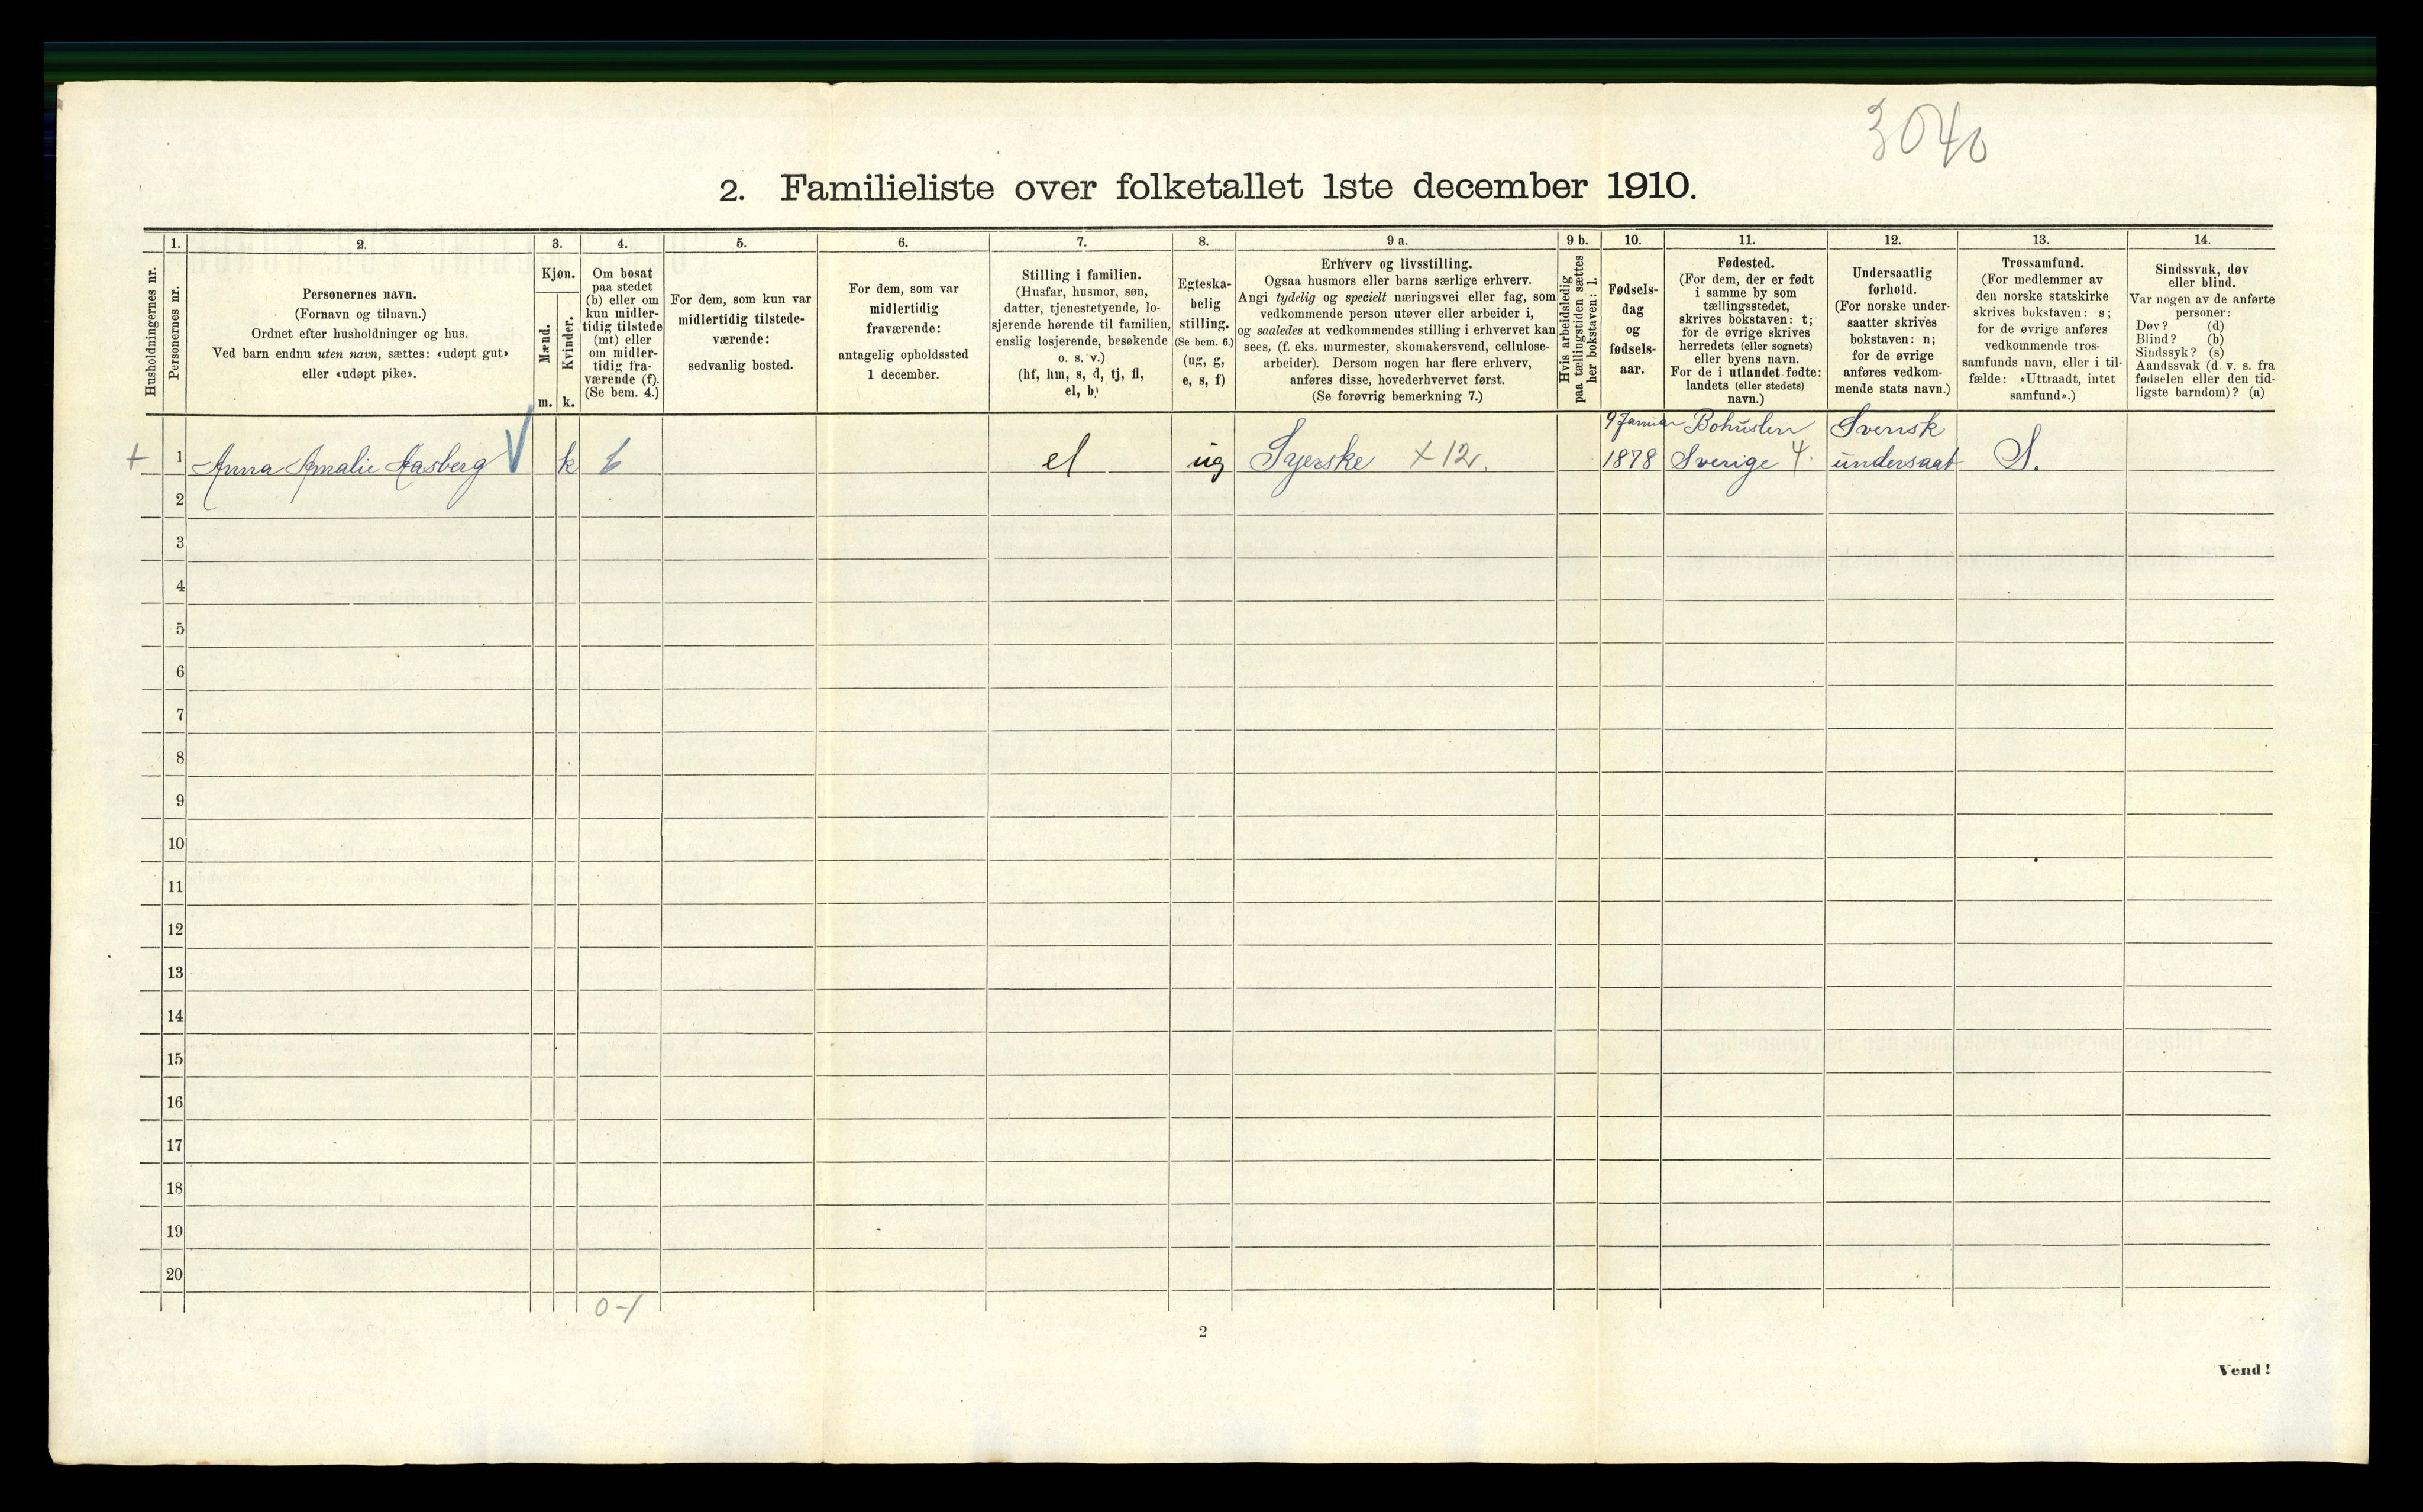 3040
2. Familieliste over folketallet 1ste december 1910.
Husholdningernes nr.
1.
Personernes nr.
2.
Personernes navn.
(Fornavn og tilnavn.)
Ordnet efter husholdninger og hus.
Ved barn endnu uten navn, sættes: «udøpt gut»
eller «udøpt pike».
3.
Kjøn.
Mænd.
m.
Kvinder.
k.
4.
Om bosat
paa stedet
(b) eller om
kun midler-
tidig tilstede
(mt) eller
om midler-
tidig fra-
værende (f).
(Se bem. 4.)
5.
For dem, som kun var
midlertidig tilstede-
værende:
sedvanlig bosted.
6.
For dem, som var
midlertidig
fraværende:
antagelig opholdssted
1 december.
7.
Stilling i familien.
(Husfar, husmor, søn,
datter, tjenestetyende, lo-
sjerende hørende til familien,
enslig losjerende, besøkende
o. s. v.)
(hf, hm, s, d, tj, fl,
el, b)
8.
Egteska-
belig
stilling.
(Se bem. 6.)
(ug, g,
e, s, f)
9 a.
Erhverv og livsstilling.
Ogsaa husmors eller barns særlige erhverv.
Angi tydelig og specielt næringsvei eller fag, som
vedkommende person utøver eller arbeider i,
og saaledes at vedkommendes stilling i erhvervet kan
sees, (f. eks. murmester, skomakersvend, cellulose-
arbeider). Dersom nogen har flere erhverv,
anføres disse, hovederhvervet først.
(Se forøvrig bemerkning 7.)
9 b.
Hvis arbeidsledig
paa tællingstiden sættes
her bokstaven: l.
10.
Fødsels-
dag
og
fødsels-
aar.
11.
Fødested.
(For dem, der er født
i samme by som
tællingsstedet,
skrives bokstaven: t;
for de øvrige skrives
herredets (eller sognets)
eller byens navn.
For de i utlandet fødte:
landets (eller stedets)
navn.)
12.
Undersaatlig
forhold.
(For norske under-
saatter skrives
bokstaven: n;
for de øvrige
anføres vedkom-
mende stats navn.)
13.
Trossamfund.
(For medlemmer av
den norske statskirke
skrives bokstaven: s;
for de øvrige anføres
vedkommende tros-
samfunds navn, eller i til-
fælde: «Uttraadt, intet
samfund».)
14.
Sindssvak, døv
eller blind.
Var nogen av de anførte
personer:
Døv? (d)
Blind? (b)
Sindssyk? (s)
Aandssvak (d. v. s. fra
fødselen eller den tid-
ligste barndom)? (a)
9 Januar Bohuslen Svensk
+ 1 Anna Amalie Aasberg V k b el ug Syerske +12. 1878 Sverige 4. undersaat S.
2
3
4
5
6
7
8
9
10
11
12
13
14
15
16
17
18
19
20
0-1
2
Vend!